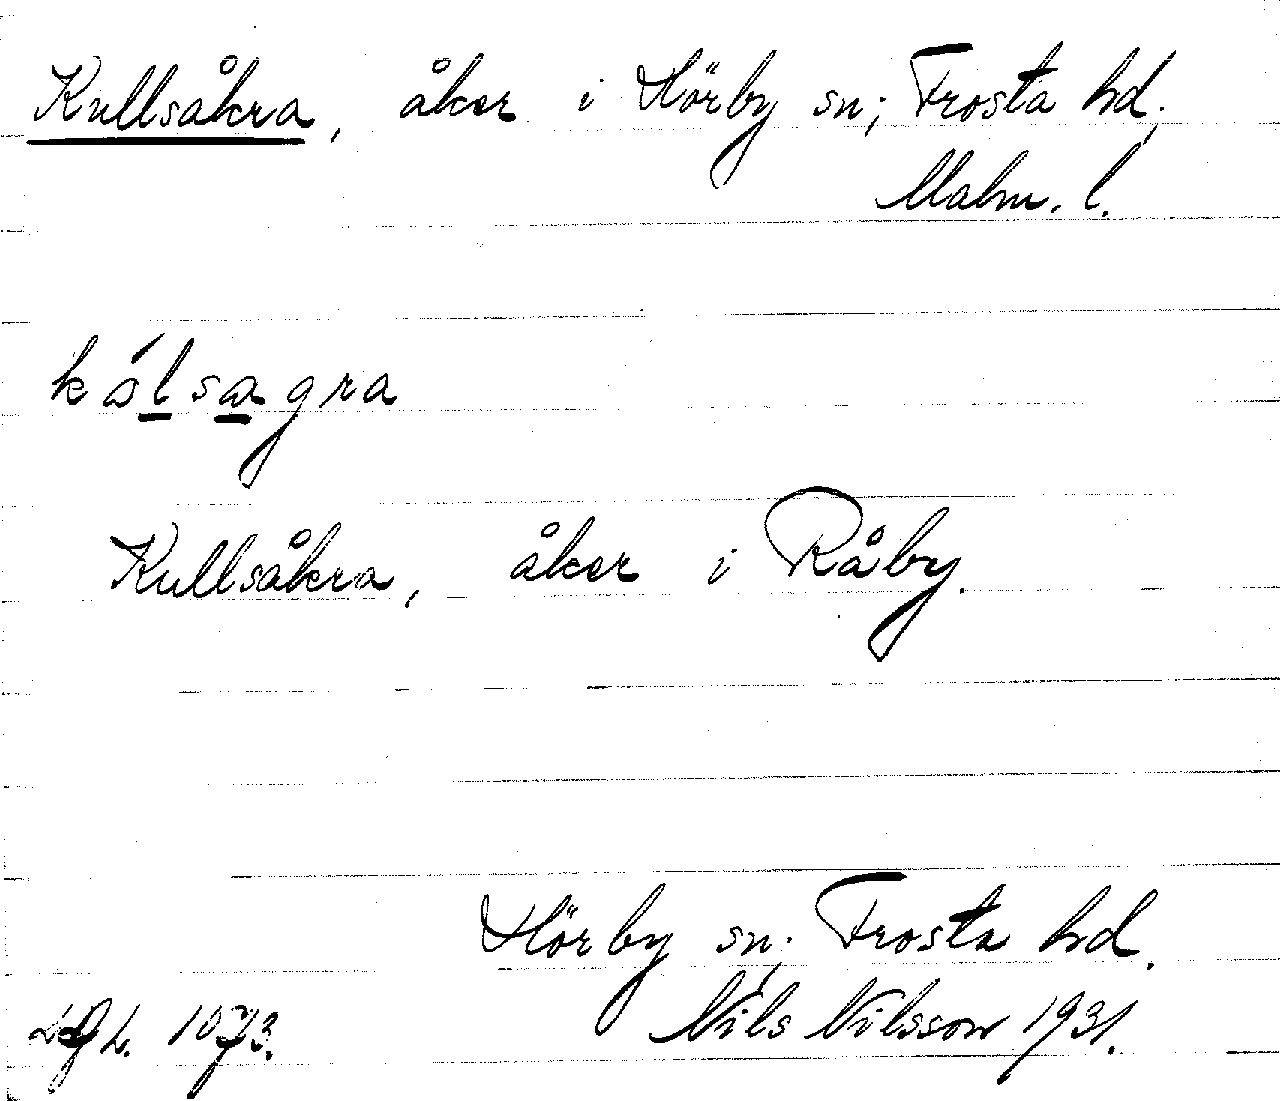 Kullsåkra, åker i Hörby sn; Frosta hd,
Malm. l.
kålsagra
Kullsåkra, åker i Råby.
Hörby sn; Frosta hd.
Nils Nilsson 1931.